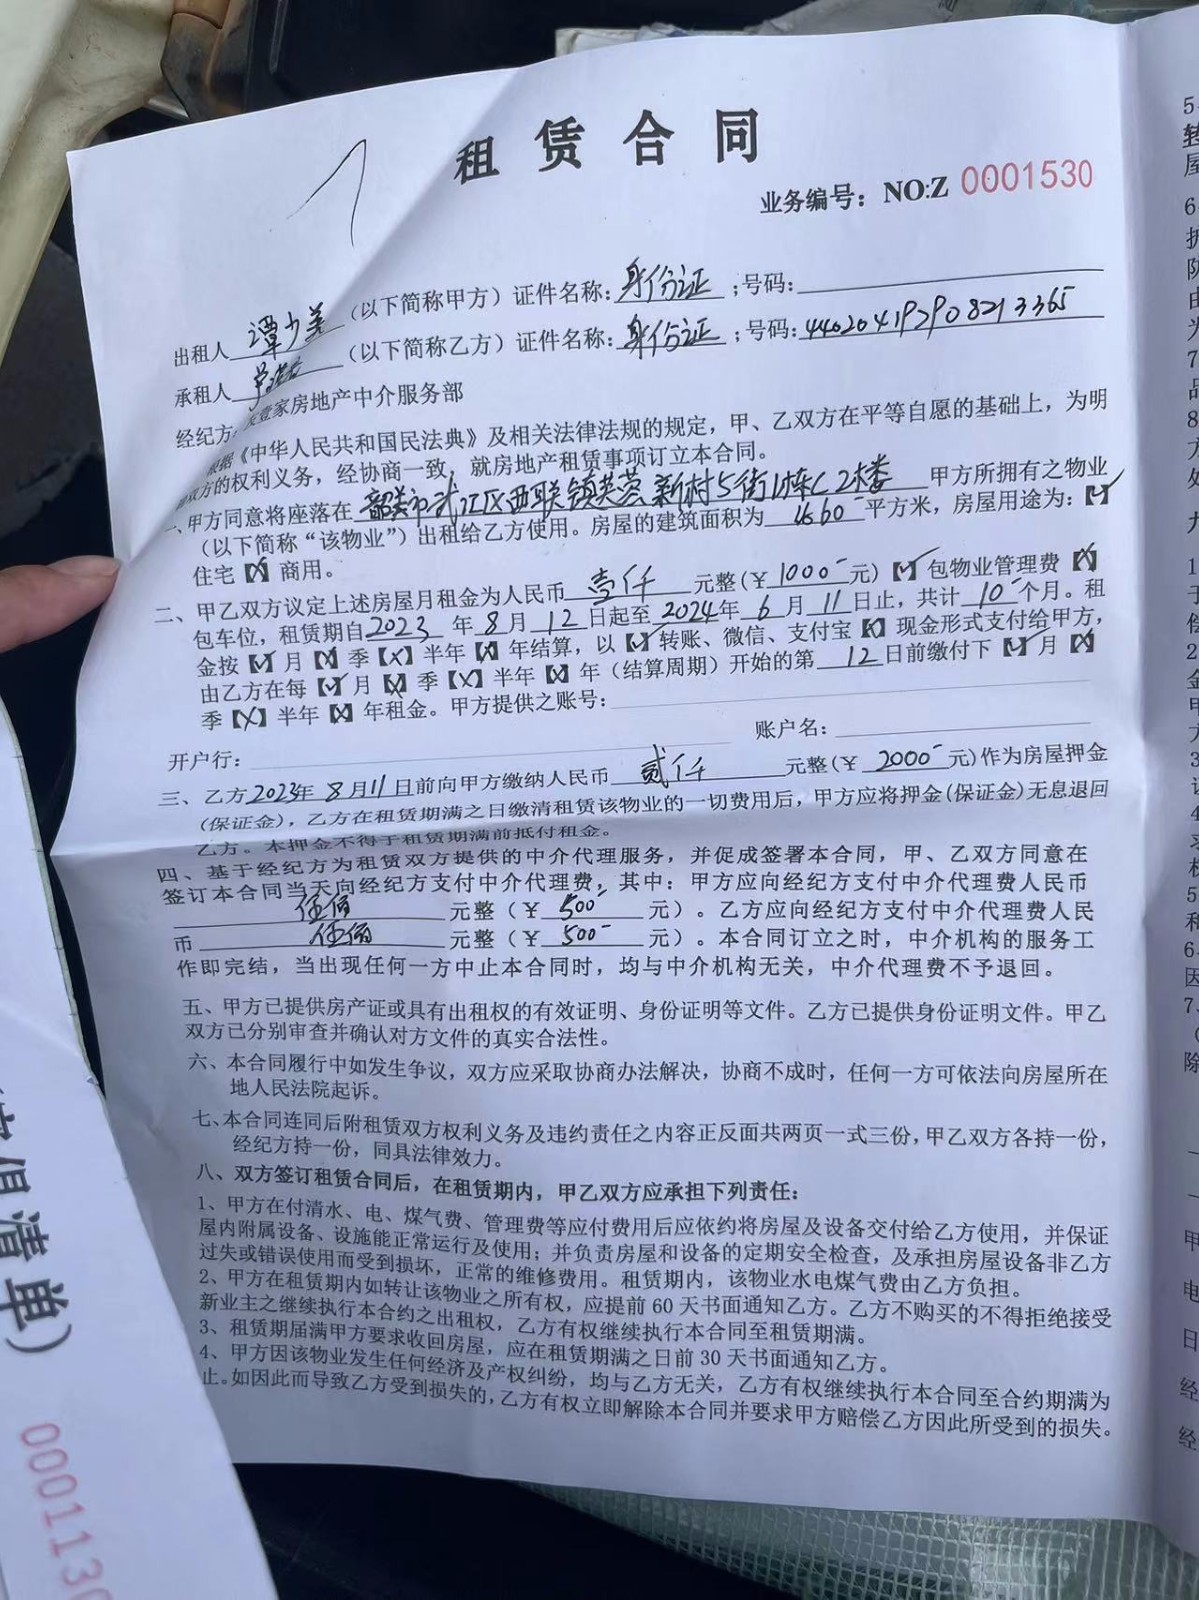 租赁合同
业务编号：NO:Z 0001530
出租人 谭少美 (以下简称甲方) 证件名称: 身份证 ;号码:
承租人 (以下简称乙方) 证件名称: 身份证 ;号码: 440204192908213365
经纪方: 家房地产中介服务部
根据《中华人民共和国民法典》及相关法律法规的规定，甲、乙双方在平等自愿的基础上，为明
双方的权利义务，经协商一致，就房地产租赁事项订立本合同。
一、甲方同意将座落在 韶关市武江区西联镇芙蓉新村5街1栋C2楼 甲方所拥有之物业
(以下简称“该物业”) 出租给乙方使用。房屋的建筑面积为 平方米，房屋用途为：【✓】
住宅【X】商用。
二、甲乙双方议定上述房屋月租金为人民币 壹仟 元整(¥ 1000 元)【✓】包物业管理费【X】
包车位，租赁期自 2023 年 8 月 12 日起至 2024 年 6 月 11 日止，共计 10 个月。租
金按【✓】月【X】季【X】半年【X】年结算，以【✓】转账、微信、支付宝【X】现金形式支付给甲方，
由乙方在每【✓】月【X】季【X】半年【X】年（结算周期）开始的第 12 日前缴付下【✓】月【X】
季【X】半年【X】年租金。甲方提供之账号：
开户行： 账户名：
三、乙方 2023年 8月11日前向甲方缴纳人民币 贰仟 元整(¥ 2000 元)作为房屋押金
(保证金)，乙方在租赁期满之日缴清租赁该物业的一切费用后，甲方应将押金(保证金)无息退回
乙方。本押金不得于租赁期满前抵付租金。
四、基于经纪方为租赁双方提供的中介代理服务，并促成签署本合同，甲、乙双方同意在
签订本合同当天向经纪方支付中介代理费，其中：甲方应向经纪方支付中介代理费人民币
伍佰 元整（¥ 500 元）。乙方应向经纪方支付中介代理费人民
币 伍佰 元整（¥ 500 元）。本合同订立之时，中介机构的服务工
作即完结，当出现任何一方中止本合同时，均与中介机构无关，中介代理费不予退回。
五、甲方已提供房产证或具有出租权的有效证明、身份证明等文件。乙方已提供身份证明文件。甲乙
双方已分别审查并确认对方文件的真实合法性。
六、本合同履行中如发生争议，双方应采取协商办法解决，协商不成时，任何一方可依法向房屋所在
地人民法院起诉。
七、本合同连同后附租赁双方权利义务及违约责任之内容正反面共两页一式三份，甲乙双方各持一份，
经纪方持一份，同具法律效力。
八、双方签订租赁合同后，在租赁期内，甲乙双方应承担下列责任：
1、甲方在付清水、电、煤气费、管理费等应付费用后应依约将房屋及设备交付给乙方使用，并保证
屋内附属设备、设施能正常运行及使用；并负责房屋和设备的定期安全检查，及承担房屋设备非乙方
过失或错误使用而受到损坏，正常的维修费用。租赁期内，该物业水电煤气费由乙方负担。
2、甲方在租赁期内如转让该物业之所有权，应提前 60 天书面通知乙方。乙方不购买的不得拒绝接受
新业主之继续执行本合约之出租权，乙方有权继续执行本合同至租赁期满。
3、租赁期届满甲方要求收回房屋，应在租赁期满之日前 30 天书面通知乙方。
4、甲方因该物业发生任何经济及产权纠纷，均与乙方无关，乙方有权继续执行本合同至合约期满为
止。如因此而导致乙方受到损失的，乙方有权立即解除本合同并要求甲方赔偿乙方因此所受到的损失。
清单）
000113